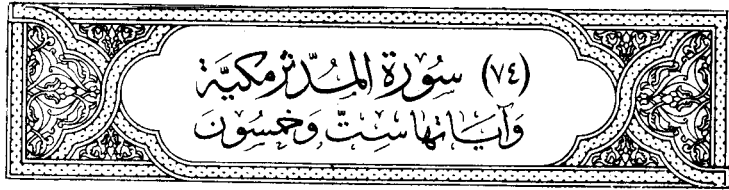 (٧٤) سُورَة المُدّثر مكيَّة
وَآيَاتها سِتّ وَخمسُونَ